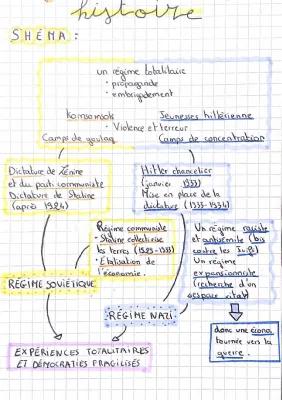 histoire
SHÉMA :
un régime totalitaire
• propagande
• embrigadement
Komsomols
Jeunesses hitlérienne
• Violence et terreur
Camps de goulag
Camps de concentration
Dictature de Lénine
et du parti communiste
Dictature de Staline
(après 1924)
Hitler chancelier
(janvier 1933)
Mise en place de la
dictature (1933-1934)
Régime communiste
• Staline collectivise
les terres (1929-1933)
• Étatisation de
l'économie.
Un régime raciste
et antisémite (lois
contre les Juifs)
Un régime
expansionniste
(recherche d'un
espace vital)
RÉGIME SOVIÉTIQUE
RÉGIME NAZI
donc une écono
tournée vers la
guerre.
EXPÉRIENCES TOTALITAIRES
ET DÉMOCRATIES FRAGILISÉS